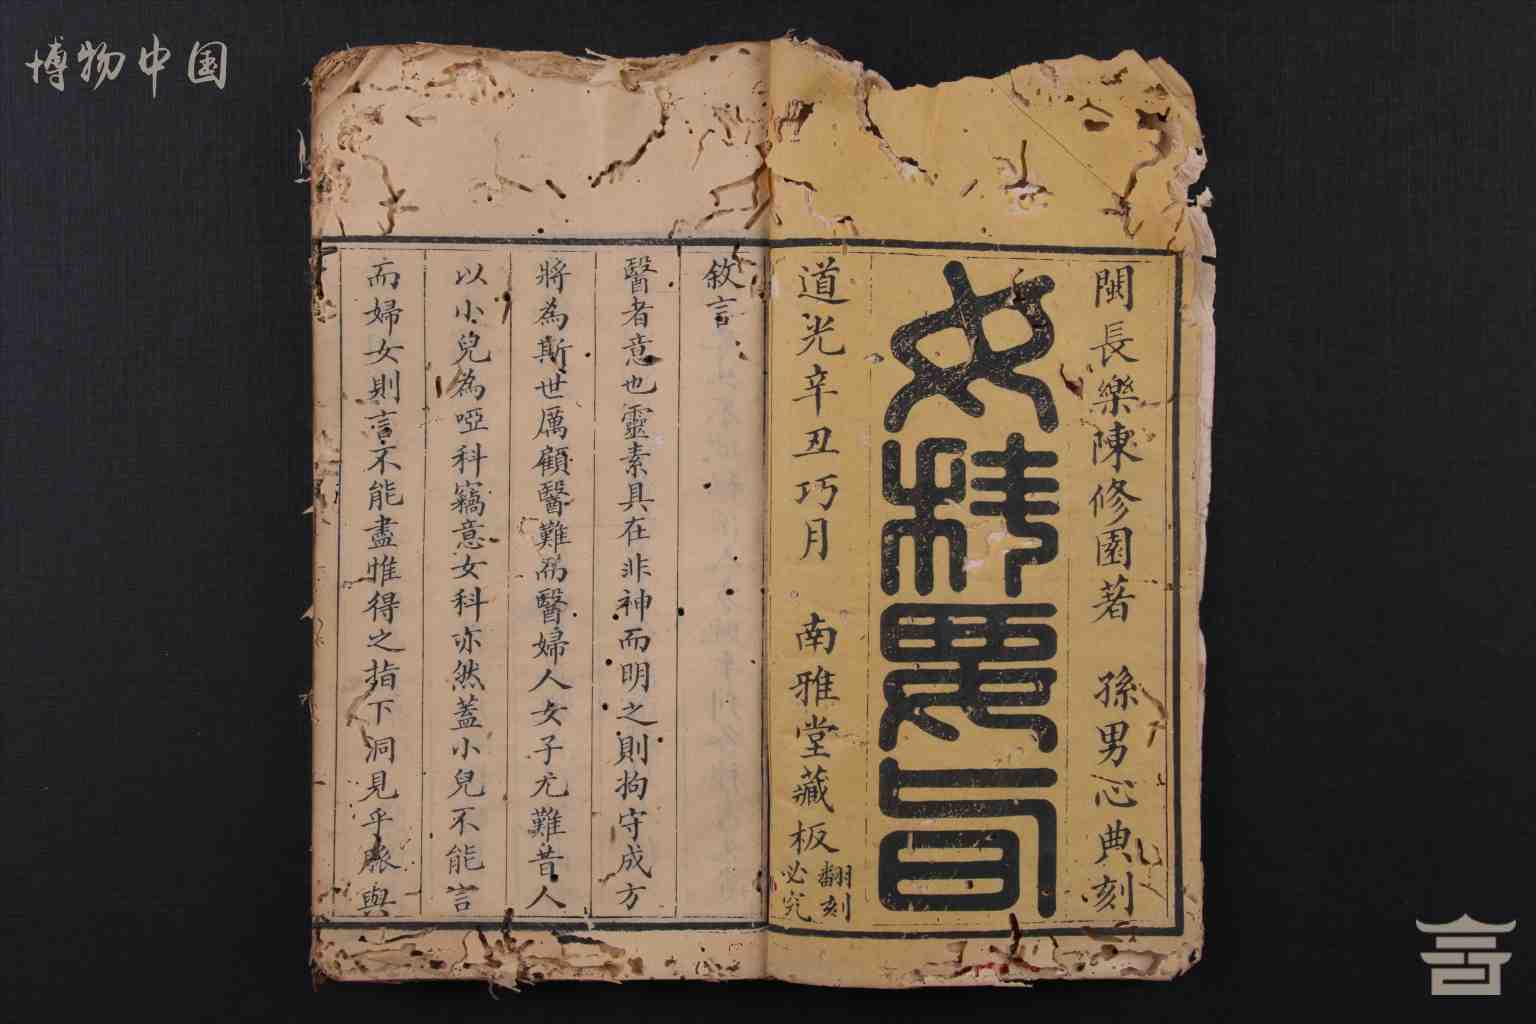 博物中国
閩長樂陳修園著 孫男心典刻
女科要旨
道光辛丑巧月 南雅堂藏板
翻刻
必究
敘言
醫者意也靈素具在非神而明之則拘守成方
將為斯世厲顧醫難而醫婦人女子尤難昔人
以小兒為啞科竊意女科亦然蓋小兒不能言
而婦女則言不能盡惟得之指下洞見乎脈與